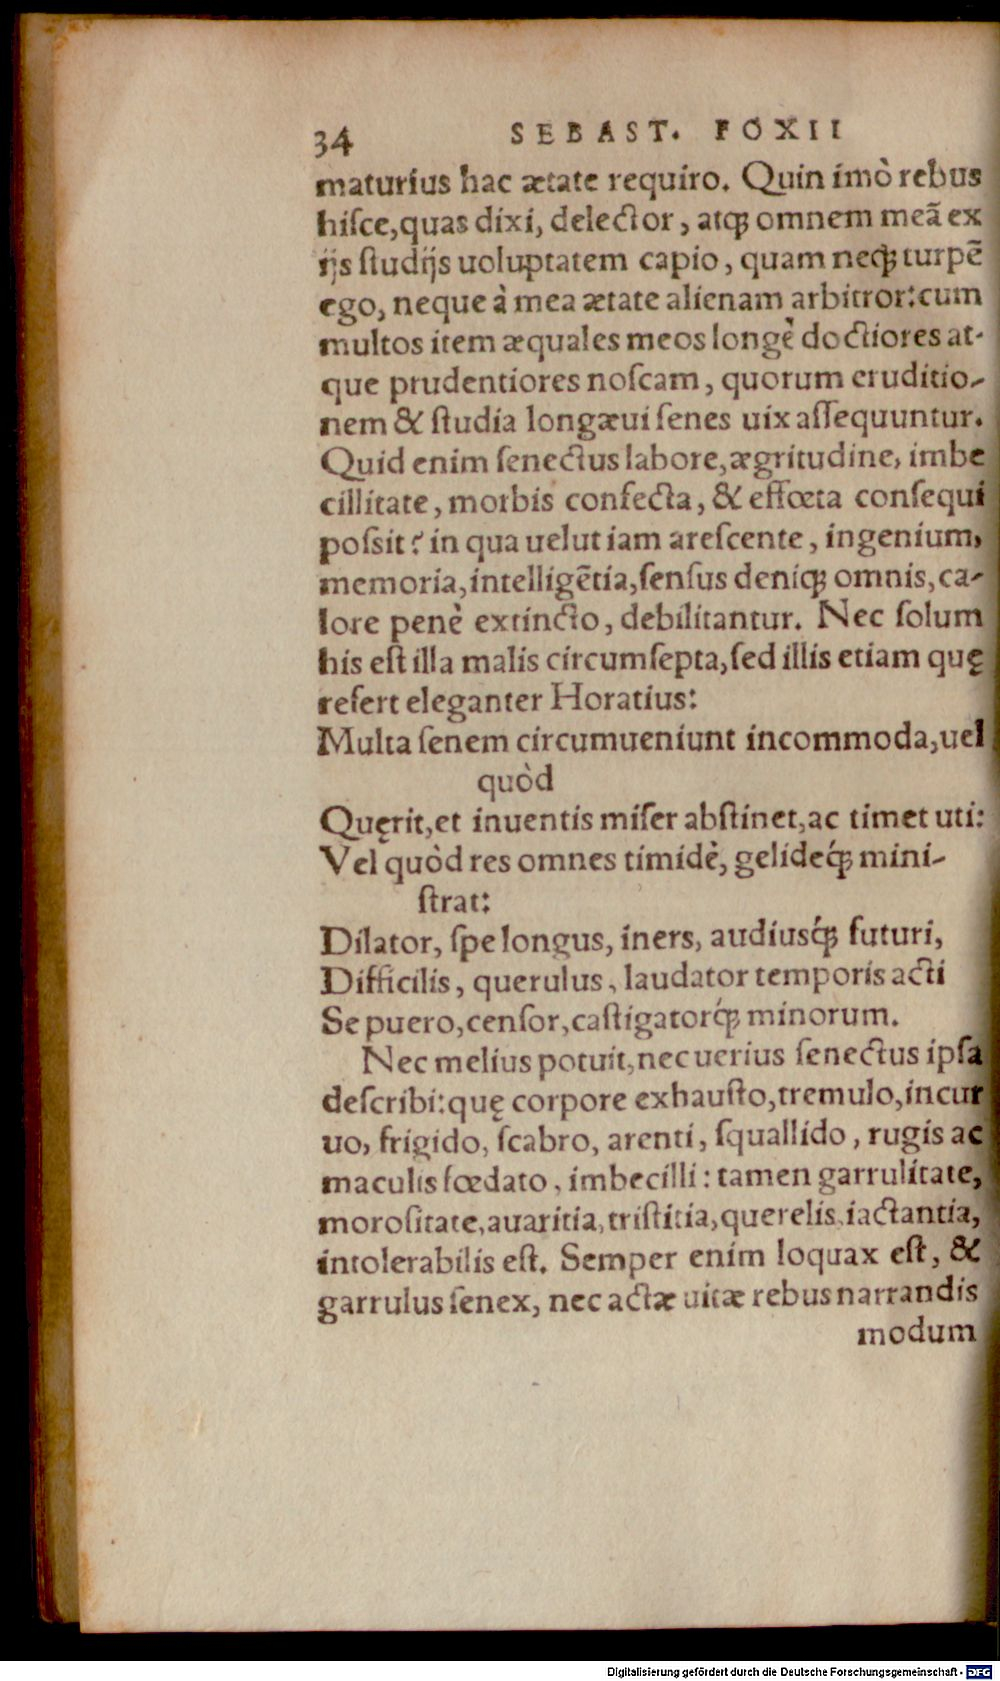 34 SEBAST. FOXII
maturius hac ætate requiro. Quin imò rebus
hiſce, quas dixi, delector, atq̃ omnem meã ex
ijs ſtudijs uoluptatem capio, quam neq̃ turpẽ
ego, neque à mea ætate alienam arbitror: cum
multos item æquales meos longè doctiores at-
que prudentiores noſcam, quorum eruditio-
nem & ſtudia longæui ſenes uix aſſequuntur.
Quid enim ſenectus labore, ægritudine, imbe
cillitate, morbis confecta, & effœta conſequi
poſsit? in qua uelut iam areſcente, ingenium,
memoria, intelligẽtia, ſenſus deniq̃ omnis, ca-
lore penè extincto, debilitantur. Nec ſolum
his eſt illa malis circumſepta, ſed illis etiam quę
refert eleganter Horatius:
Multa ſenem circumueniunt incommoda, uel
quòd
Quęrit, et inuentis miſer abſtinet, ac timet uti:
Vel quòd res omnes timidè, gelideq́; mini-
ſtrat:
Dilator, ſpe longus, iners, audiusq́; futuri,
Difficilis, querulus, laudator temporis acti
Se puero, cenſor, caſtigatorq́; minorum.
Nec melius potuit, nec uerius ſenectus ipſa
deſcribi: quę corpore exhauſto, tremulo, incur
uo, frigido, ſcabro, arenti, ſquallido, rugis ac
maculis fœdato, imbecilli: tamen garrulitate,
moroſitate, auaritia, triſtitia, querelis, iactantia,
intolerabilis eſt. Semper enim loquax eſt, &
garrulus ſenex, nec actæ uitæ rebus narrandis
modum
Digitalisierung gefördert durch die Deutsche Forschungsgemeinschaft - DFG